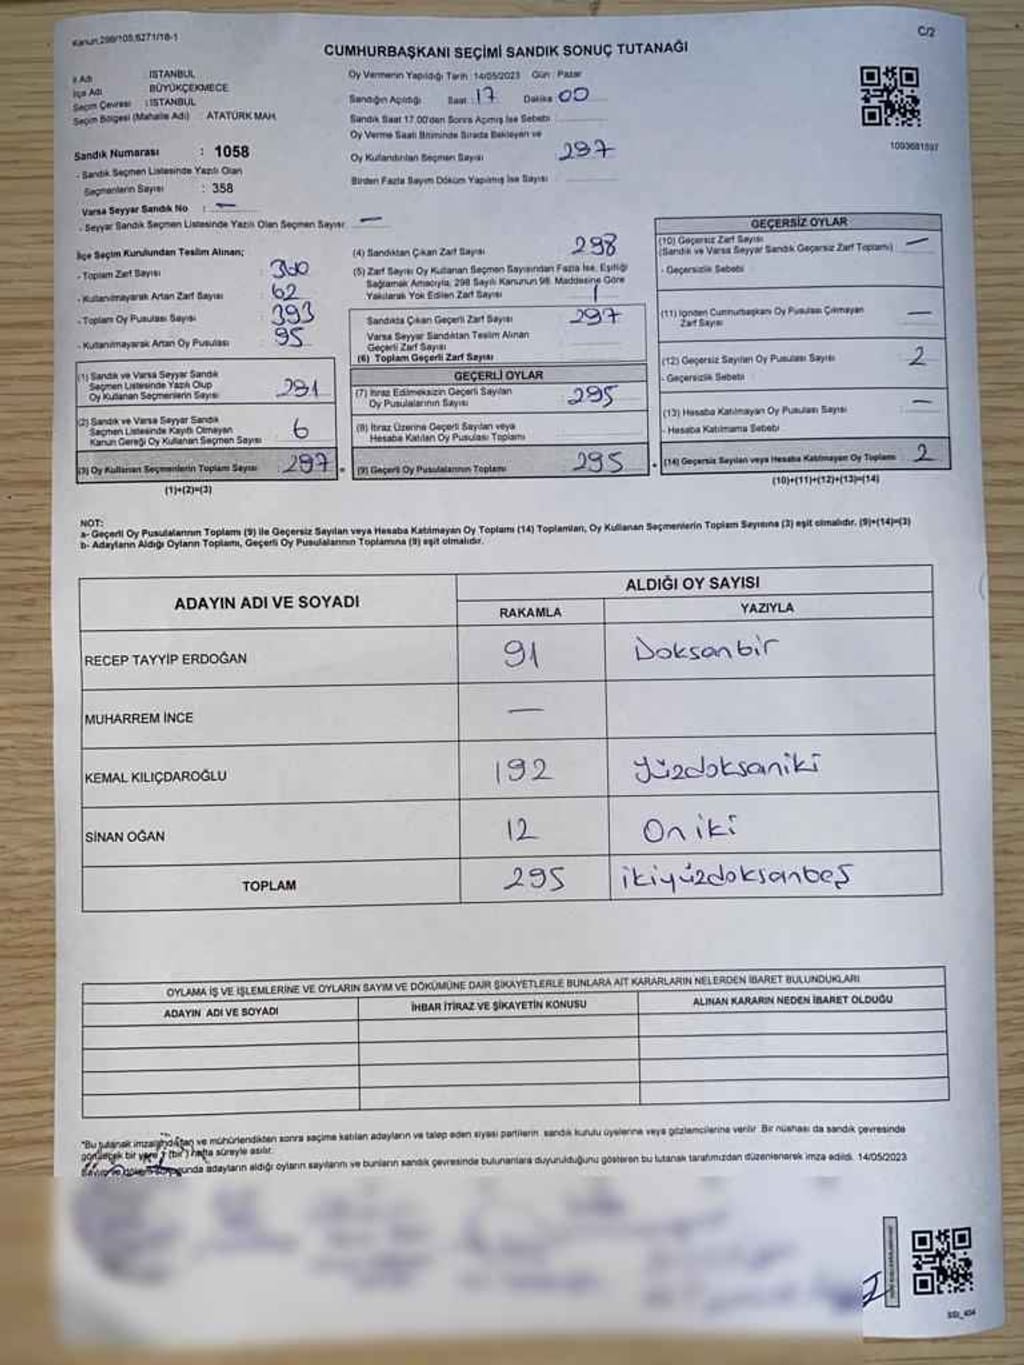 Kanun:298/105,6271/18-1
C/2
CUMHURBAŞKANI SEÇİMİ SANDIK SONUÇ TUTANAĞI
İl Adı : İSTANBUL
İlçe Adı : BÜYÜKÇEKMECE
Seçim Çevresi : İSTANBUL
Seçim Bölgesi (Mahalle Adı) : ATATÜRK MAH.
Sandık Numarası : 1058
- Sandık Seçmen Listesinde Yazılı Olan
Seçmenlerin Sayısı : 358
Varsa Seyyar Sandık No : —
- Seyyar Sandık Seçmen Listesinde Yazılı Olan Seçmen Sayısı : —
Oy Vermenin Yapıldığı Tarih : 14/05/2023 Gün : Pazar
Sandığın Açıldığı Saat : 17 Dakika : 00
Sandık Saat 17.00'den Sonra Açılmış İse Sebebi
Oy Verme Saati Bitiminde Sırada Bekleyen ve
Oy Kullandırılan Seçmen Sayısı 297
Birden Fazla Sayım Döküm Yapılmış İse Sayısı
1093681597
İlçe Seçim Kurulundan Teslim Alınan;
- Toplam Zarf Sayısı : 360
- Kullanılmayarak Artan Zarf Sayısı : 62
- Toplam Oy Pusulası Sayısı : 393
- Kullanılmayarak Artan Oy Pusulası : 95
(1) Sandık ve Varsa Seyyar Sandık
Seçmen Listesinde Yazılı Olup
Oy Kullanan Seçmenlerin Sayısı : 291
(2) Sandık ve Varsa Seyyar Sandık
Seçmen Listesinde Kayıtlı Olmayan
Kanun Gereği Oy Kullanan Seçmen Sayısı : 6
(3) Oy Kullanan Seçmenlerin Toplam Sayısı : 297
(1)+(2)=(3)
(4) Sandıktan Çıkan Zarf Sayısı 298
(5) Zarf Sayısı Oy Kullanan Seçmen Sayısından Fazla İse, Eşitliği
Sağlamak Amacıyla, 298 Sayılı Kanunun 98. Maddesine Göre
Yakılarak Yok Edilen Zarf Sayısı 1
Sandıkta Çıkan Geçerli Zarf Sayısı 297
Varsa Seyyar Sandıktan Teslim Alınan
Geçerli Zarf Sayısı
(6) Toplam Geçerli Zarf Sayısı
GEÇERLİ OYLAR
(7) İtiraz Edilmeksizin Geçerli Sayılan
Oy Pusulalarının Sayısı 295
(8) İtiraz Üzerine Geçerli Sayılan veya
Hesaba Katılan Oy Pusulası Toplamı
(9) Geçerli Oy Pusulalarının Toplamı 295
GEÇERSİZ OYLAR
(10) Geçersiz Zarf Sayısı —
(Sandık ve Varsa Seyyar Sandık Geçersiz Zarf Toplamı)
- Geçersizlik Sebebi
(11) İçinden Cumhurbaşkanı Oy Pusulası Çıkmayan —
Zarf Sayısı
(12) Geçersiz Sayılan Oy Pusulası Sayısı 2
- Geçersizlik Sebebi
(13) Hesaba Katılmayan Oy Pusulası Sayısı —
- Hesaba Katılmama Sebebi
(14) Geçersiz Sayılan veya Hesaba Katılmayan Oy Toplamı 2
(10)+(11)+(12)+(13)=(14)
NOT:
a- Geçerli Oy Pusulalarının Toplamı (9) ile Geçersiz Sayılan veya Hesaba Katılmayan Oy Toplamı (14) Toplamları, Oy Kullanan Seçmenlerin Toplam Sayısına (3) eşit olmalıdır. (9)+(14)=(3)
b- Adayların Aldığı Oyların Toplamı, Geçerli Oy Pusulalarının Toplamına (9) eşit olmalıdır.
ADAYIN ADI VE SOYADI
ALDIĞI OY SAYISI
RAKAMLA YAZIYLA
RECEP TAYYİP ERDOĞAN 91 Doksanbir
MUHARREM İNCE —
KEMAL KILIÇDAROĞLU 192 yüzdoksaniki
SİNAN OĞAN 12 On iki
TOPLAM 295 ikiyüzdoksanbeş
OYLAMA İŞ VE İŞLEMLERİNE VE OYLARIN SAYIM VE DÖKÜMÜNE DAİR ŞİKAYETLERLE BUNLARA AİT KARARLARIN NELERDEN İBARET BULUNDUKLARI
ADAYIN ADI VE SOYADI İHBAR İTİRAZ VE ŞİKAYETİN KONUSU ALINAN KARARIN NEDEN İBARET OLDUĞU
"Bu tutanak imzalandıktan ve mühürlendikten sonra seçime katılan adayların ve talep eden siyasi partilerin sandık kurulu üyelerine veya gözlemcilerine verilir. Bir nüshası da sandık çevresinde
görülecek bir yere 1 (bir) hafta süreyle asılır.
sonunda adayların aldığı oyların sayılarını ve bunların sandık çevresinde bulunanlara duyurulduğunu gösteren bu tutanak tarafımızdan düzenlenerek imza edildi. 14/05/2023